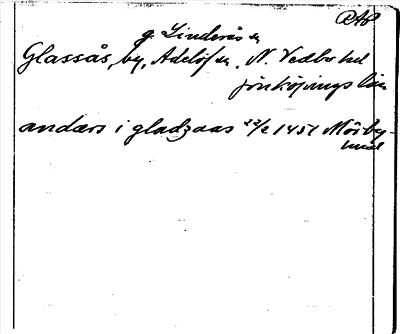 RAP
g. Linderås sn
Glassås, by, Adelöf sn, N. Vedbo hd
Jönköpings län
anders i gladzaas 22/2 1451 Mörby-